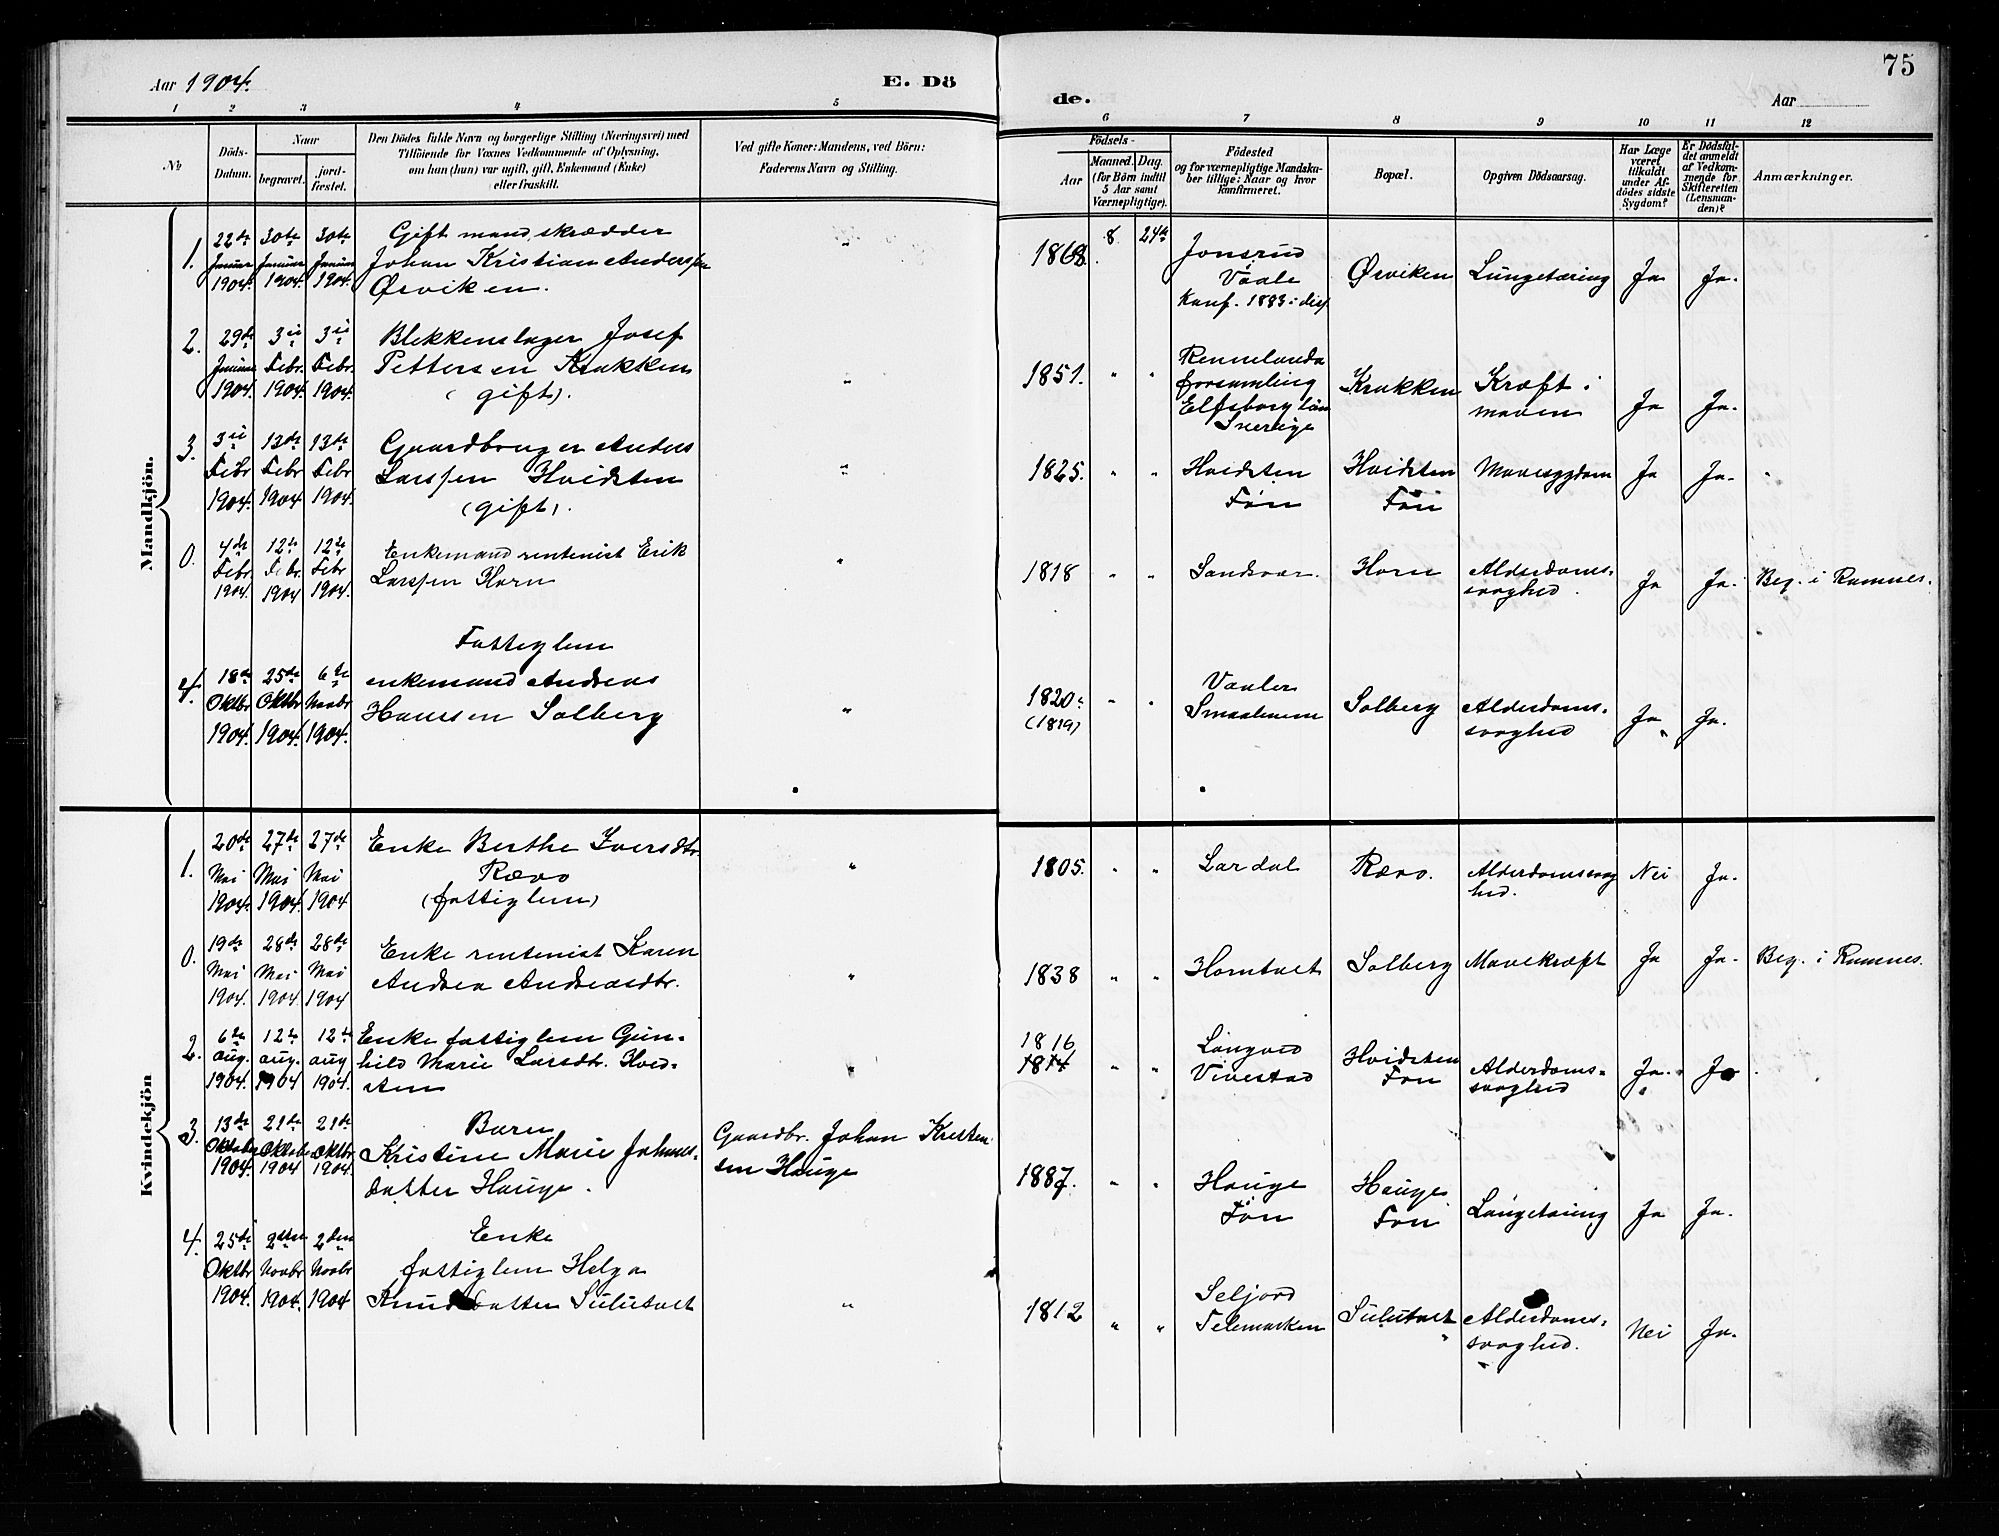 75
Aar 1904.
E. Dö
de.
Aar
1 2 3 4 5
6 7 8 9 10 11 12
No
Döds-
Datum.
Naar
begravet.
jord-
fæstet.
Den Dödes fulde Navn og borgerlige Stilling (Næringsvei) med
Tilföiende for Voxnes Vedkommende af Oplysning,
om han (hun) var ugift, gift, Enkemand (Enke)
eller fraskilt.
Ved gifte Koner: Mandens, ved Börn:
Faderens Navn og Stilling.
Födsels-
Aar
Maaned. Dag.
(for Börn indtil
5 Aar samt
Værnepligtige).
Födested
og for værnepligtige Mandska-
ber tillige: Naar og hvor
konfirmeret.
Bopæl.
Opgiven Dödsaarsag.
Har Læge
været
tilkaldt
under Af-
dödes sidste
Sygdom?
Er Dödsfal-
det anmeldt
af Vedkom-
mende for
Skifteretten
(Lensman-
den)?
Anmærkninger.
Mandkjön.
1.
22de Januar 1904.
30te Januar 1904.
30te Januar 1904.
Gift mand, skrædder
Johan Kristian Anderssen
Ørviken.
"
1868.
8. 24de
Jonsrud
Vaale
Konf. 1883 i
Ørviken
Lungetæring
Ja
Ja.
2.
29de Januar 1904.
3die Febr. 1904.
3die Febr. 1904.
Blekkenslager Josef
Pettersen Krakken
(gift).
"
1851.
" "
Rennelanda
forsamling
Elfsborg län
Sverige
Krakken
Kræft i
maven
Ja
Ja.
3.
3die Febr 1904.
13de Febr 1904.
13de Febr 1904.
Gaardbruger Anders
Larssen Hvidsten
(gift).
"
1825.
" "
Hvidsten
Fön
Hvidsten
Fön
Mavesygdom
Ja
Ja.
0.
4de Febr. 1904.
12te Febr. 1904
12te Febr 1904.
Enkemand rentenist Erik
Larssen Horn
"
1818
" "
Sandsvær.
Horn
Alderdoms-
svaghed.
Ja
Ja.
Beg. i Ramnes.
4.
18de Oktbr 1904.
25de Oktbr 1904.
6te Novbr 1904.
Fattiglem
enkemand Andreas
Hanssen Solberg
"
1820.
(1819)
" "
Vaaler
Smaalenene
Solberg
Alderdoms-
svaghed
Ja
Ja.
Kvindekjön
1.
20de Mai 1904.
27de Mai 1904.
27de Mai 1904
Enke Berthe Iversdtr.
Rævo
(fattiglem)
"
1805.
" "
Lardal
Rævo.
Alderdomssvag
hed.
Nei
Ja.
0.
19de Mai 1904.
28de Mai 1904
28de Mai 1904
Enke rentenist Karen
Andrea Andreasdtr.
"
1838
" "
Horntvet
Solberg
Mavekræft
Ja
Ja.
Beg. i Ramnes.
2.
6te aug. 1904.
12te aug. 1904
12te aug 1904.
Enke fattiglem Gun-
hild Marie Larsdtr. Hvid-
sten
"
1816
1814
" "
Langved
Vivestad
Hvidsten
Fon
Alderdoms-
svaghed
Ja.
Ja
3.
13de Oktober 1904.
21de Oktober 1904
21de Oktbr 1904.
Barn
Kristine Marie Johans-
datter Hauge.
Gaardbr. Johan Kristen
sen Hauge
1887.
" "
Hauge
Fön
Hauge
Fon
Lungetæring
Ja
Ja.
4.
25de Oktbr 1904.
2den Novbr 1904.
2den Novbr 1904
Enke
fattiglem Helga
Knudsdatter Sulutvet
"
1812
" "
Seljord
Telemarken
Sulutvet
Alderdoms-
svaghed.
Nei
Ja.